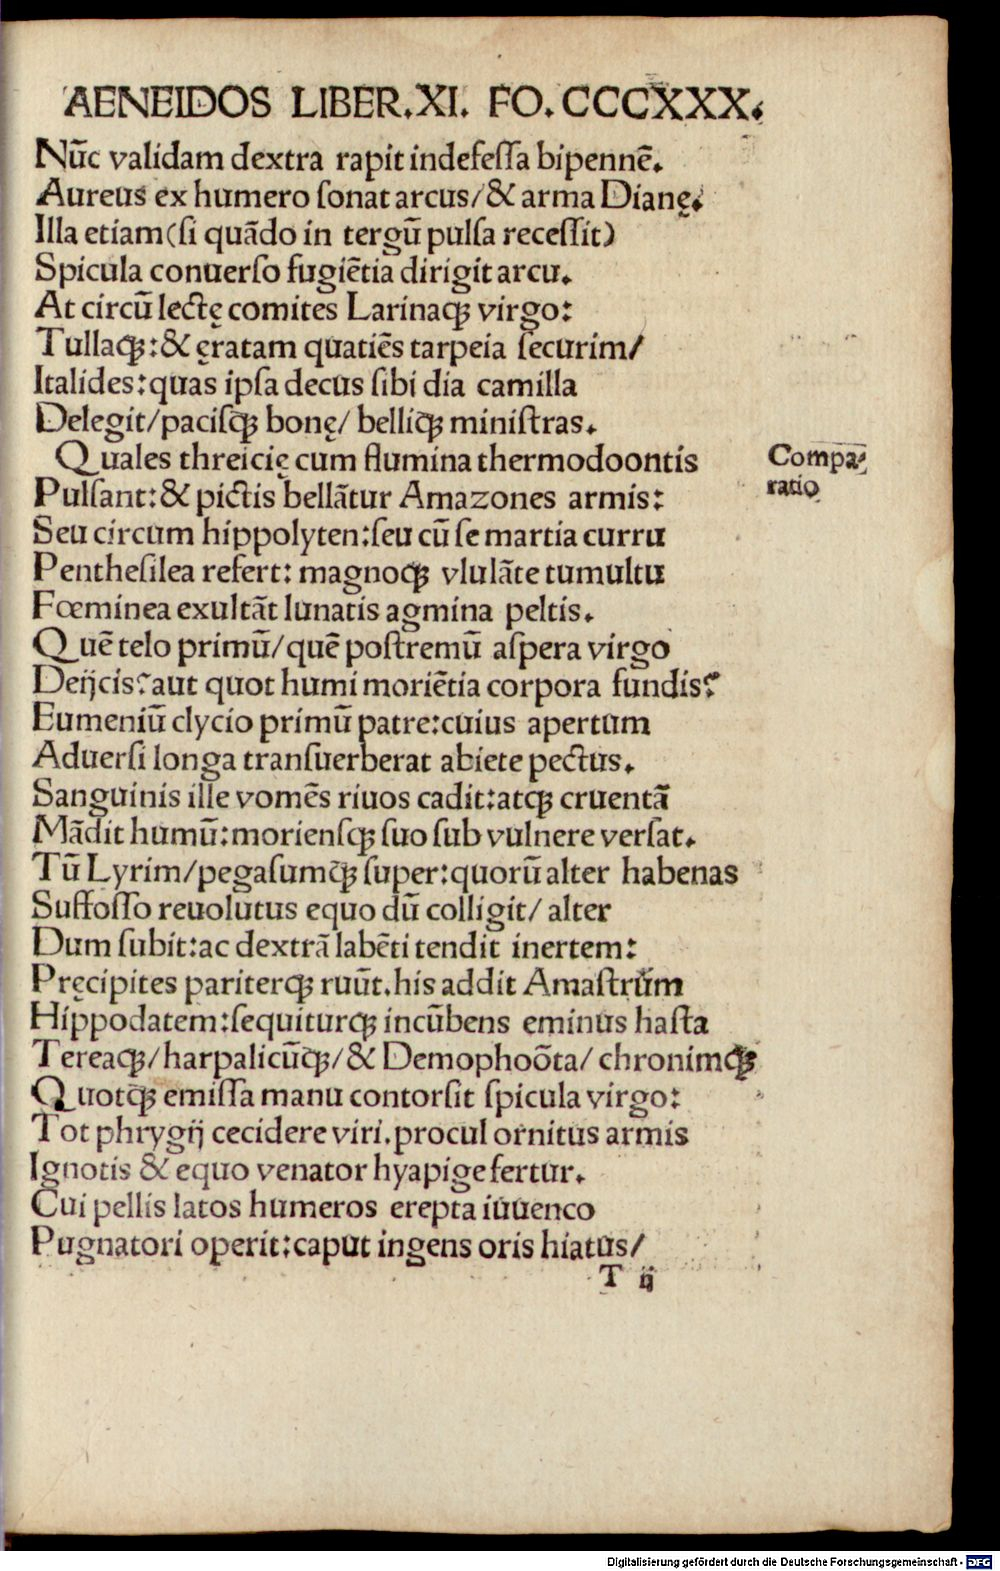 AENEIDOS LIBER.XI. FO.CCCXXX.
Nūc validam dextra rapit indefeſſa bipennē.
Aureus ex humero ſonat arcus/& arma Dianę.
Illa etiam(ſi quādo in tergū pulſa receſſit)
Spicula conuerſo fugiētia dirigit arcu.
At circū lectę comites Larinaqꝫ virgo:
Tullaqꝫ:& ęratam quatiēs tarpeia ſecurim/
Italides:quas ipſa decus ſibi dia camilla
Delegit/paciſqꝫ bonę/ belliqꝫ miniſtras.
Quales threicię cum flumina thermodoontis
Compa⸗
ratio
Pulſant:& pictis bellātur Amazones armis:
Seu circum hippolyten:ſeu cū ſe martia curru
Pentheſilea refert: magnoqꝫ vlulāte tumultu
Fœminea exultāt lunatis agmina peltis.
Quē telo primū/quē poſtremū aſpera virgo
Deijcis?aut quot humi moriētia corpora fundis?
Eumeniū clycio primū patre:cuius apertum
Aduerſi longa tranſuerberat abiete pectus.
Sanguinis ille vomēs riuos cadit:atqꝫ cruentā
Mādit humū:morienſqꝫ ſuo ſub vulnere verſat.
Tū Lyrim/pegaſumqꝫ ſuper:quorū alter habenas
Suffoſſo reuolutus equo dū colligit/ alter
Dum ſubit:ac dextrā labēti tendit inertem:
Pręcipites pariterqꝫ ruūt.his addit Amaſtrum
Hippodatem:ſequiturqꝫ incūbens eminus haſta
Tereaqꝫ/harpalicūqꝫ/& Demophoōta/ chronimqꝫ
Quotqꝫ emiſſa manu contorſit ſpicula virgo:
Tot phrygij cecidere viri.procul ornitus armis
Ignotis & equo venator hyapige fertur.
Cui pellis latos humeros erepta iuuenco
Pugnatori operit:caput ingens oris hiatus/
T ij
Digitalisierung gefördert durch die Deutsche Forschungsgemeinschaft - DFG